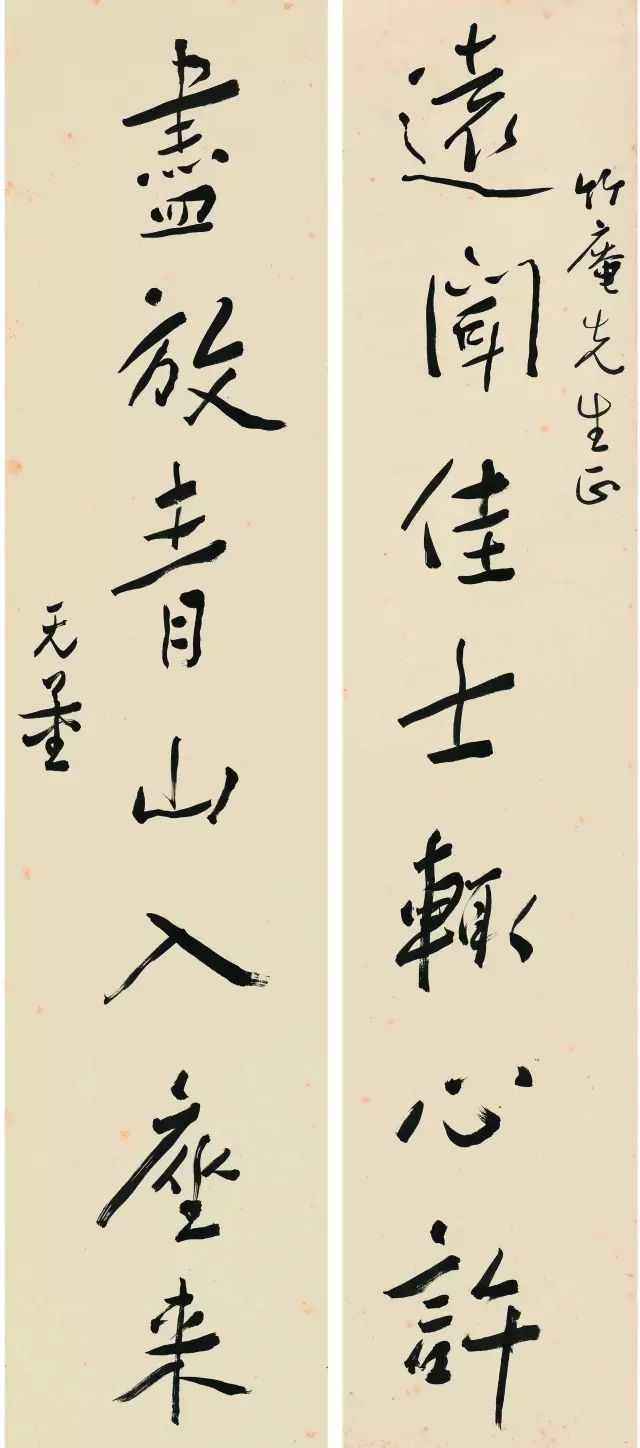 竹庵先生正
遠聞佳士輒心許
盡放青山入座來
无量